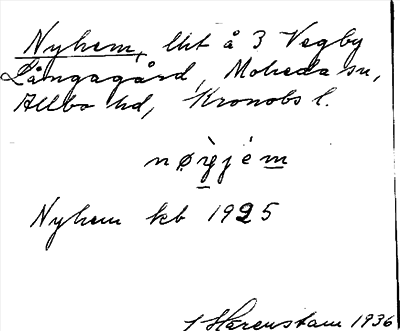 Nyhem, lht å 3 Vegby
Långagård, Moheda sn,
Allbo hd, Kronobs l.
Nyhem kb 1925
Härenstam 1936